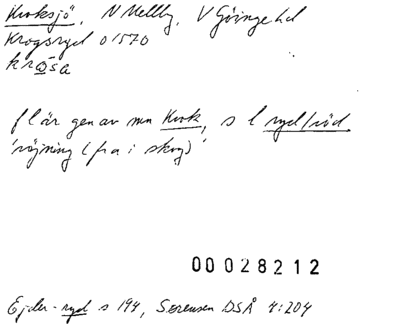 Kroksjö, N Mellby, V Göinge hd
Krogsryd 01570
krosa
fl är gen av mn Krok, s l ryd/röd
'röjning (fra i skog)'
00028212
Ejder-ryd s 194, Sørensen DSÅ 4:204